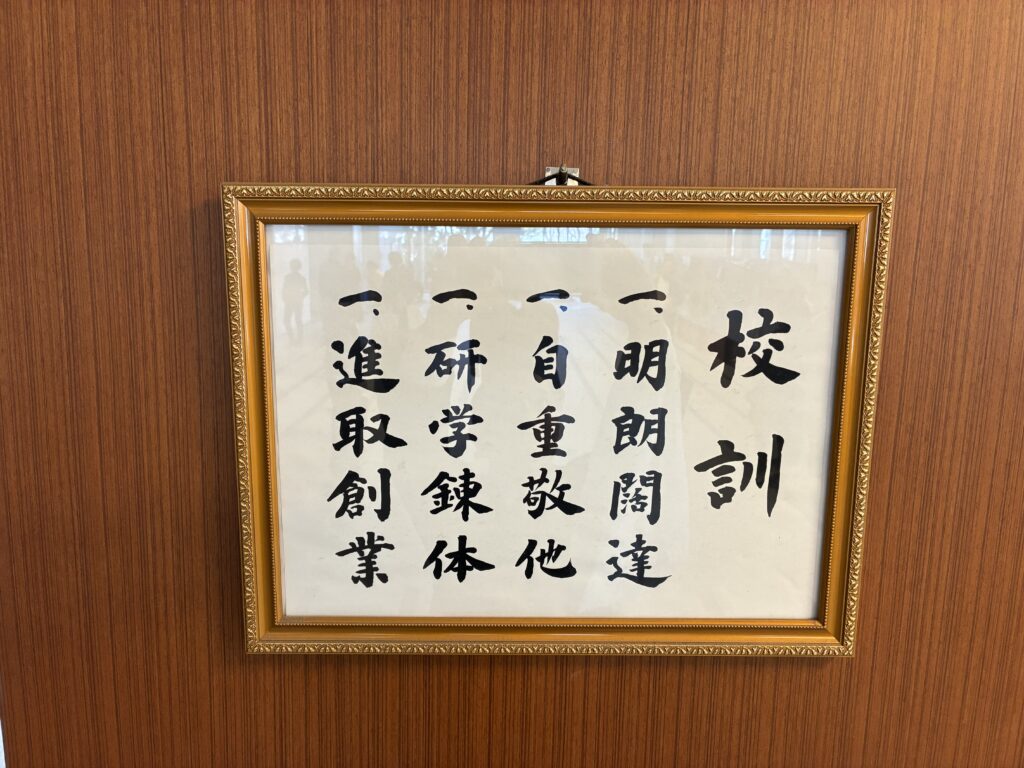 校訓
一、明朗闊達
一、自重敬他
一、研学錬体
一、進取創業